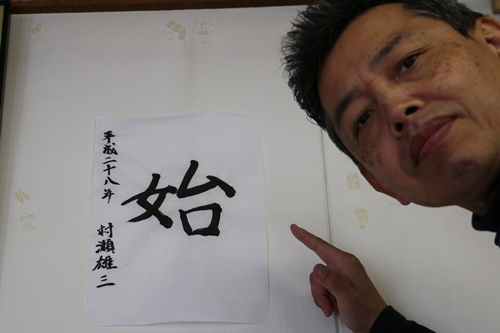 始
平成二十八年 村瀬雄三